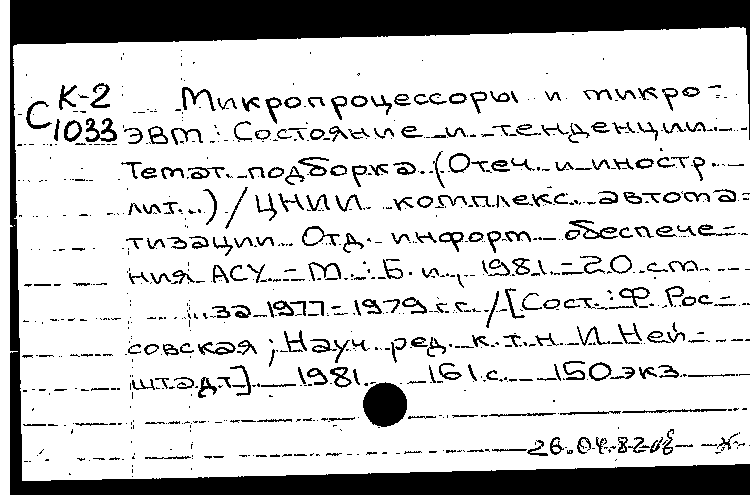 К-2
С 1033
Микропроцессоры и микро-
ЭВМ : Состояние и тенденции
Темат. подборка (Отеч. и иностр.
лит..) / ЦНИИ комплекс. автома-
тизации. Отд. информ. обеспече-
ния АСУ. - М. : Б. и., 1981. - 20 см.
.. за 1977-1979 г.г. / [Сост. : Ф. Рос-
совская ; Науч. ред. к. т. н. И. Ней-
штадт]. 1981. 161 с. 150 экз.
26.04.82